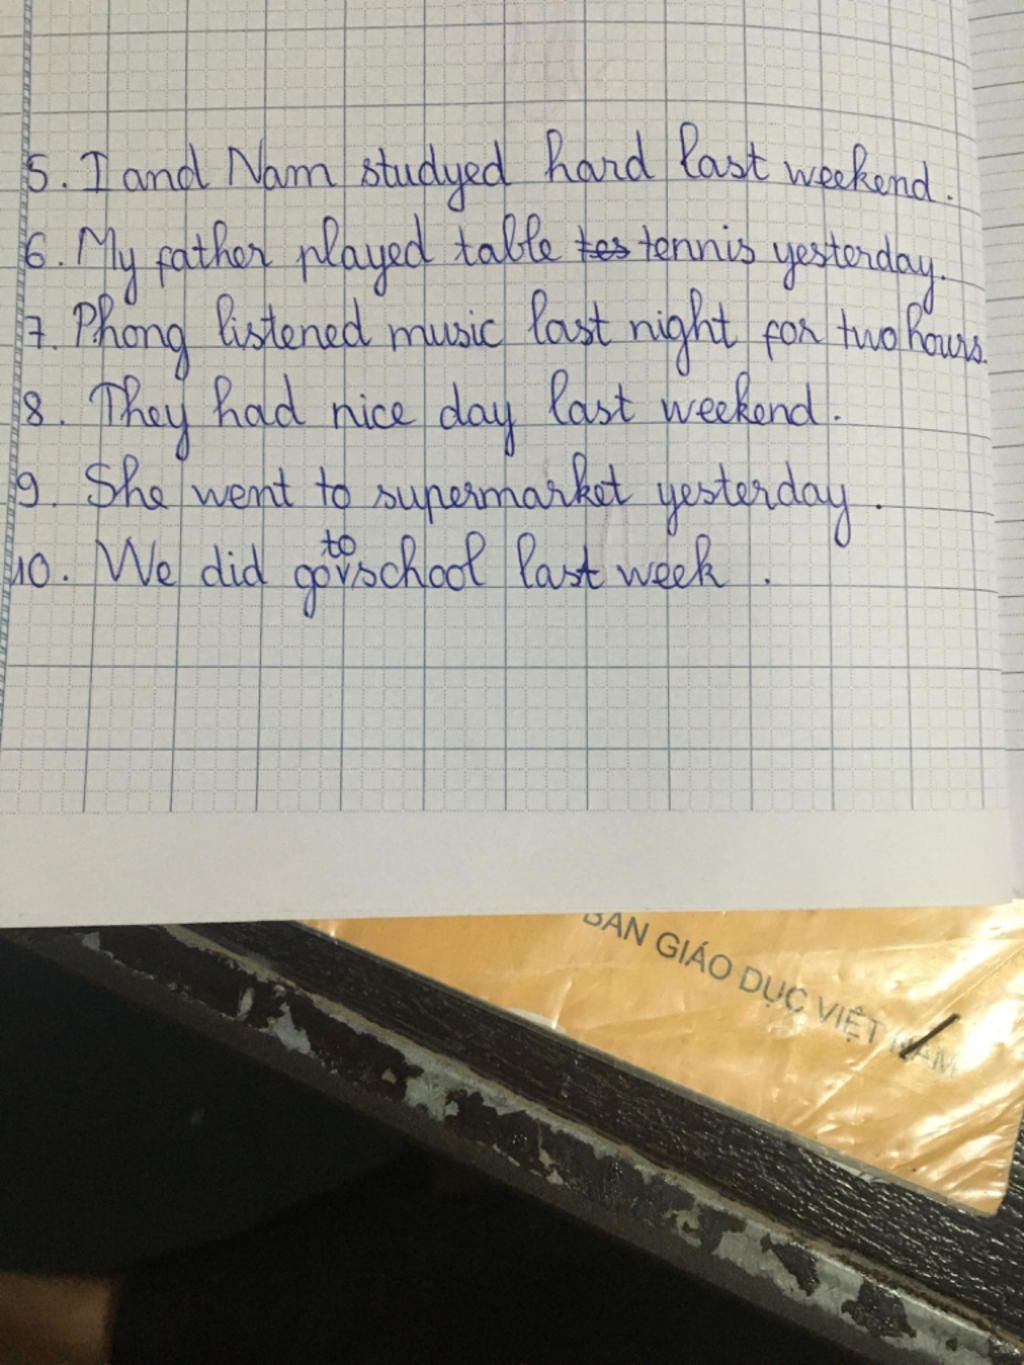 5. I and Nam studyed hard last weekend.
6. My father played table tes tennis yesterday.
7. Phong listened music last night for two hours.
8. They had nice day last weekend.
9. She went to supermarket yesterday.
10. We did go to school last week.
BẢN GIÁO DỤC VIỆT NAM